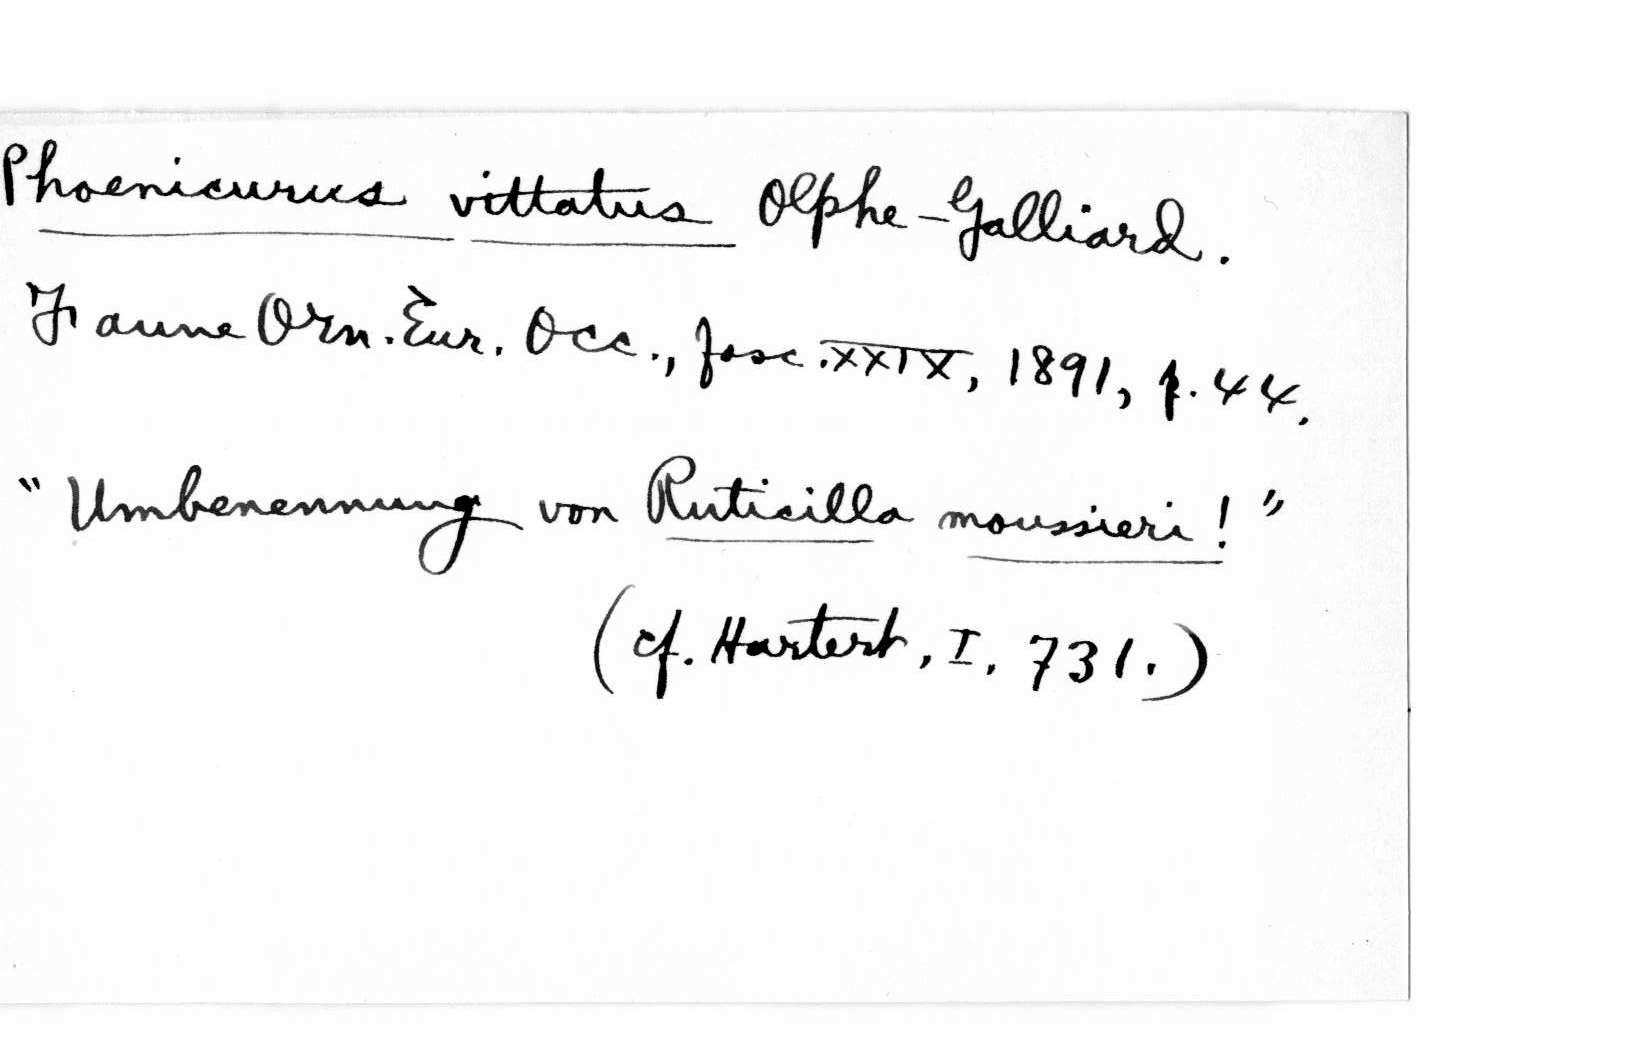 Phoenicurus vittatus Olphe-Galliard.
Faune Orn. Eur. Occ., fasc. XXIX, 1891, p. 44.
"Umbenennung von Ruticilla moussieri!"
(cf. Hartert, I. 731.)